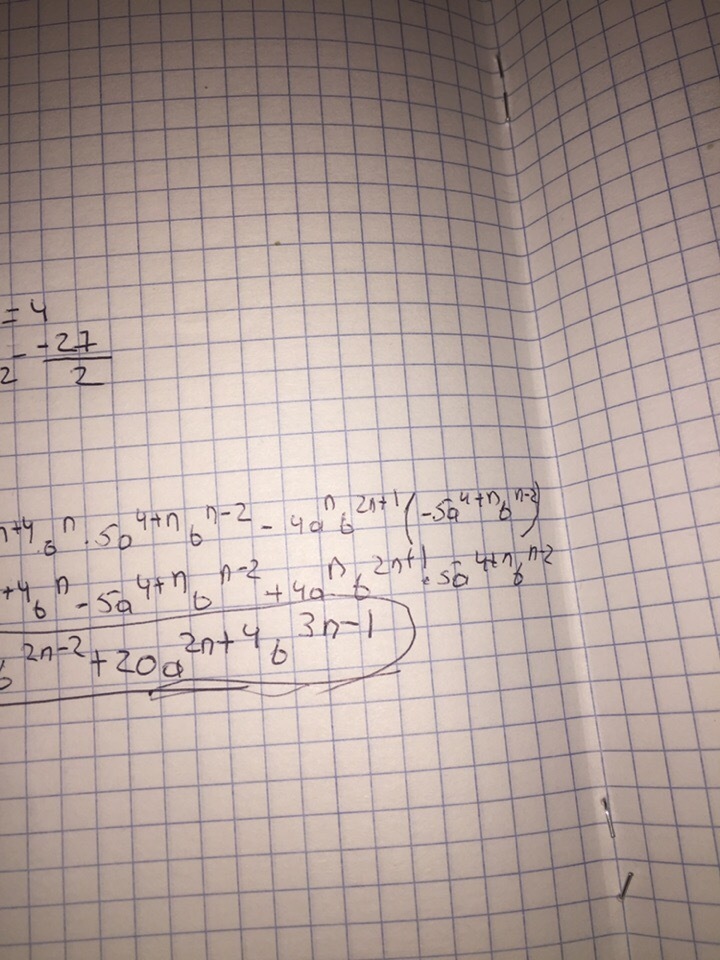 = 4
2 - -27/2
n+4 b^n · 5a^{4+n} b^{n-2} - 4a^n b^{2n+1} (-5a^{4+n} b^{n-2})
+4 b^n - 5a^{4+n} b^{n-2} + 4a^n b^{2n+1} · 5a^{4+n} b^{n-2}
b^{2n-2} + 20a^{2n+4} b^{3n-1}